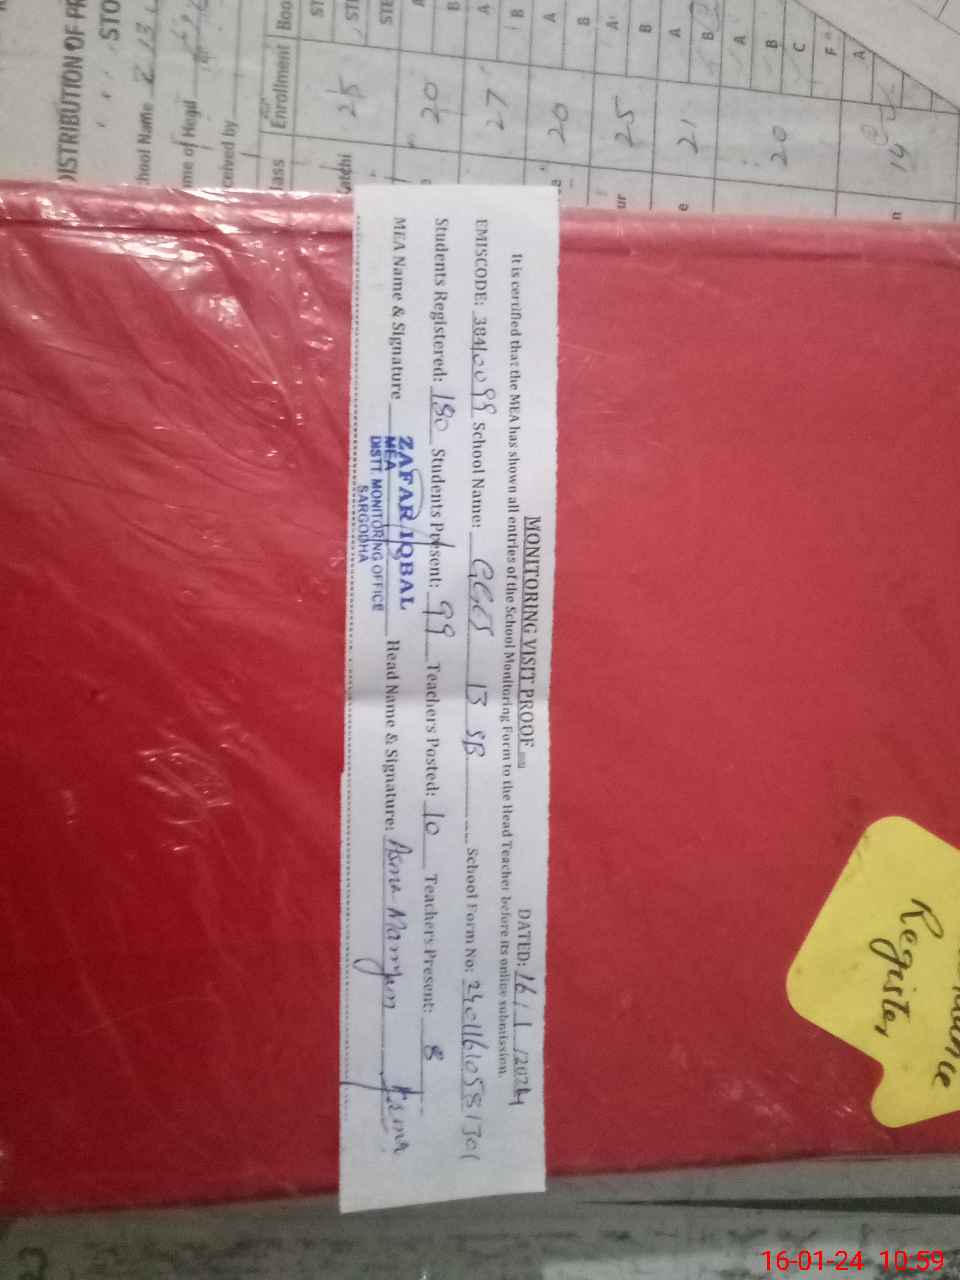 MONITORING VISIT PROOF
DATED: 16/1/2024
It is certified that the MEA has shown all entries of the School Monitoring Form to the Head Teacher before its online submission.
EMISCODE: 38410099 School Name: GGES 13 SB School Form No: 24011610581301
Students Registered: 180 Students Present: 99 Teachers Posted: 10 Teachers Present: 8
MEA Name & Signature Head Name & Signature: Asma Mamyam Asma
ZAFAR IQBAL
MEA
DISTT. MONITORING OFFICE
SARGODHA
Register
DISTRIBUTION OF
STO
hool Name
me of Head
ceived by
lass Enrollment Boo
Katchi 25
20
27
20
25
21
20
14
16-01-24 10:59